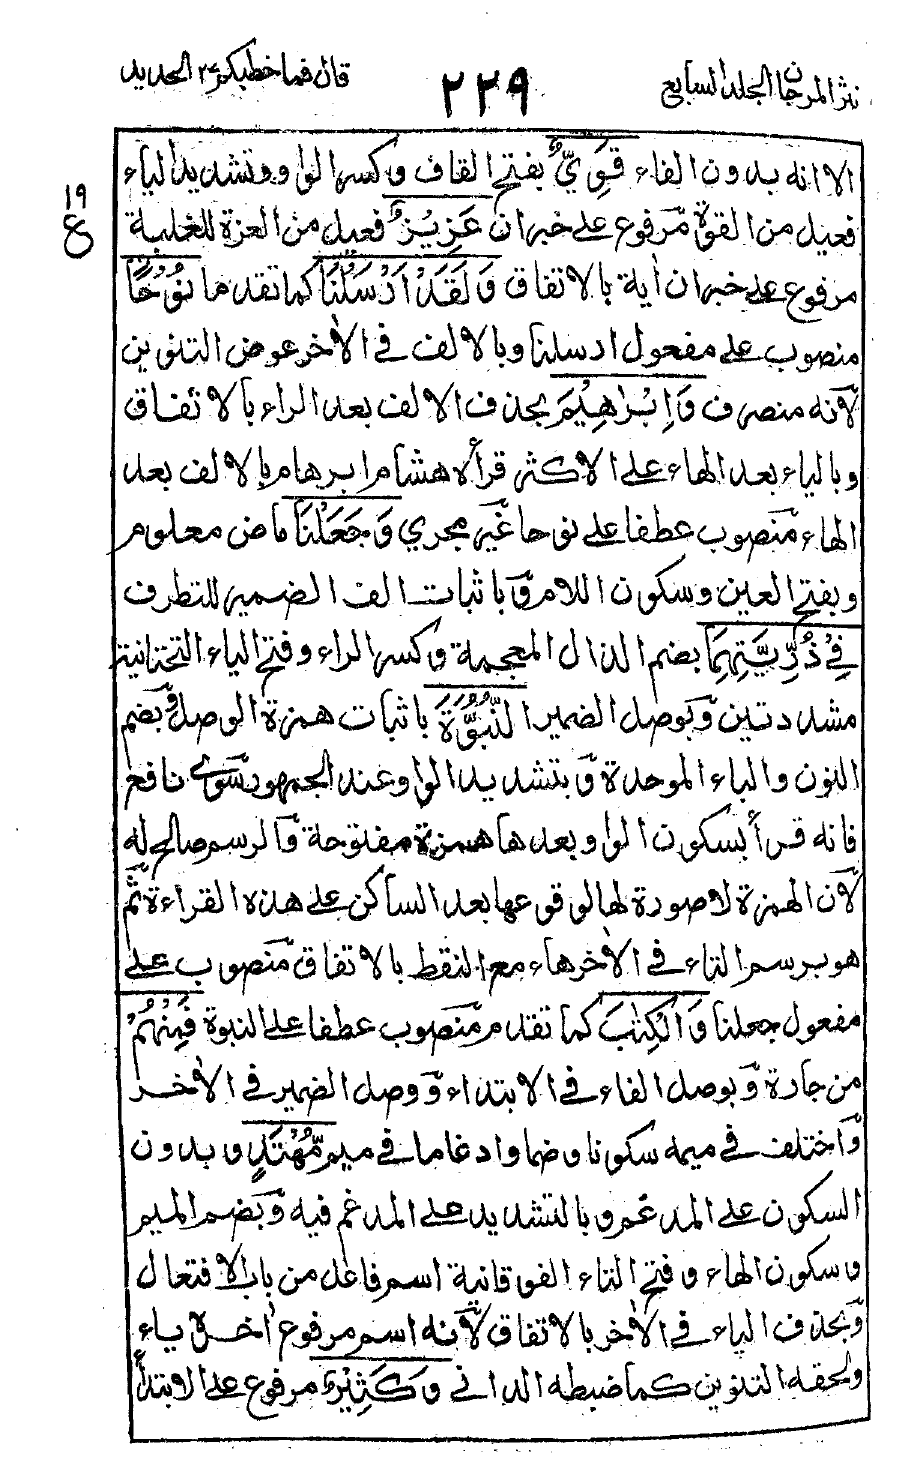 نثر المرجان الجلد السابع
٢٢٩
قال فما خطبكم ٢٧ الحديد
١٩
ع
الا انه بدون الفاء قَوِيٌّ بفتح القاف وكسر الواو وتشديد الياء
فعيل من القوة مرفوع على خبر ان عَزِيْزٌ فعيل من العزة للغلبة
مرفوع على خبر ان اٰية بالاتفاق وَلَقَدْ اَرْسَلْنَا كما تقدم نُوْحًا
منصوب على مفعول ارسلنا وبالالف في الاٰخر عوض التنوين
لانه منصرف وَاِبْرٰهِيْمَ بحذف الالف بعد الراء بالاتفاق
وبالياء بعد الهاء على الاكثر قرأه هشام ابرهام بالالف بعد
الهاء منصوب عطفا على نوحا غير مجري وَجَعَلْنَا ماض معلوم
وبفتح العين وسكون اللام وباثبات الف الضمير للتطرف
فِيْ ذُرِّيَّتِهِمَا بضم الذال المعجمة وكسر الراء وفتح الياء التحتانية
مشددتين وبوصل الضمير النُّبُوَّةَ باثبات همزة الوصل وبضم
النون والباء الموحدة وبتشديد الواو عند الجمهور سوى نافع
فانه قرأ بسكون الواو وبعدها همزة مفتوحة والرسم صالح له
لان الهمزة لا صورة لها لوقوعها بعد الساكن على هذه القراءة ثم
هو برسم التاء في الاٰخر هاء مع النقط بالاتفاق منصوب على
مفعول جعلنا وَالْكِتٰبَ كما تقدم منصوب عطفا على النبوة فَمِنْهُمْ
من جارة وبوصل الفاء في الابتداء ووصل الضمير في الاٰخر
واختلف في ميمه سكونا وضما وادغاما في ميم مُّهْتَدٍ وبدون
السكون على المدغم وبالتشديد على المدغم فيه وبضم الميم
وسكون الهاء وفتح التاء الفوقانية اسم فاعل من باب الافتعال
وبحذف الياء في الاٰخر بالاتفاق لانه اسم مرفوع اٰخره ياء
ولحقه التنوين كما ضبطه الداني وَكَثِيْرٌ مرفوع على الابتدأ